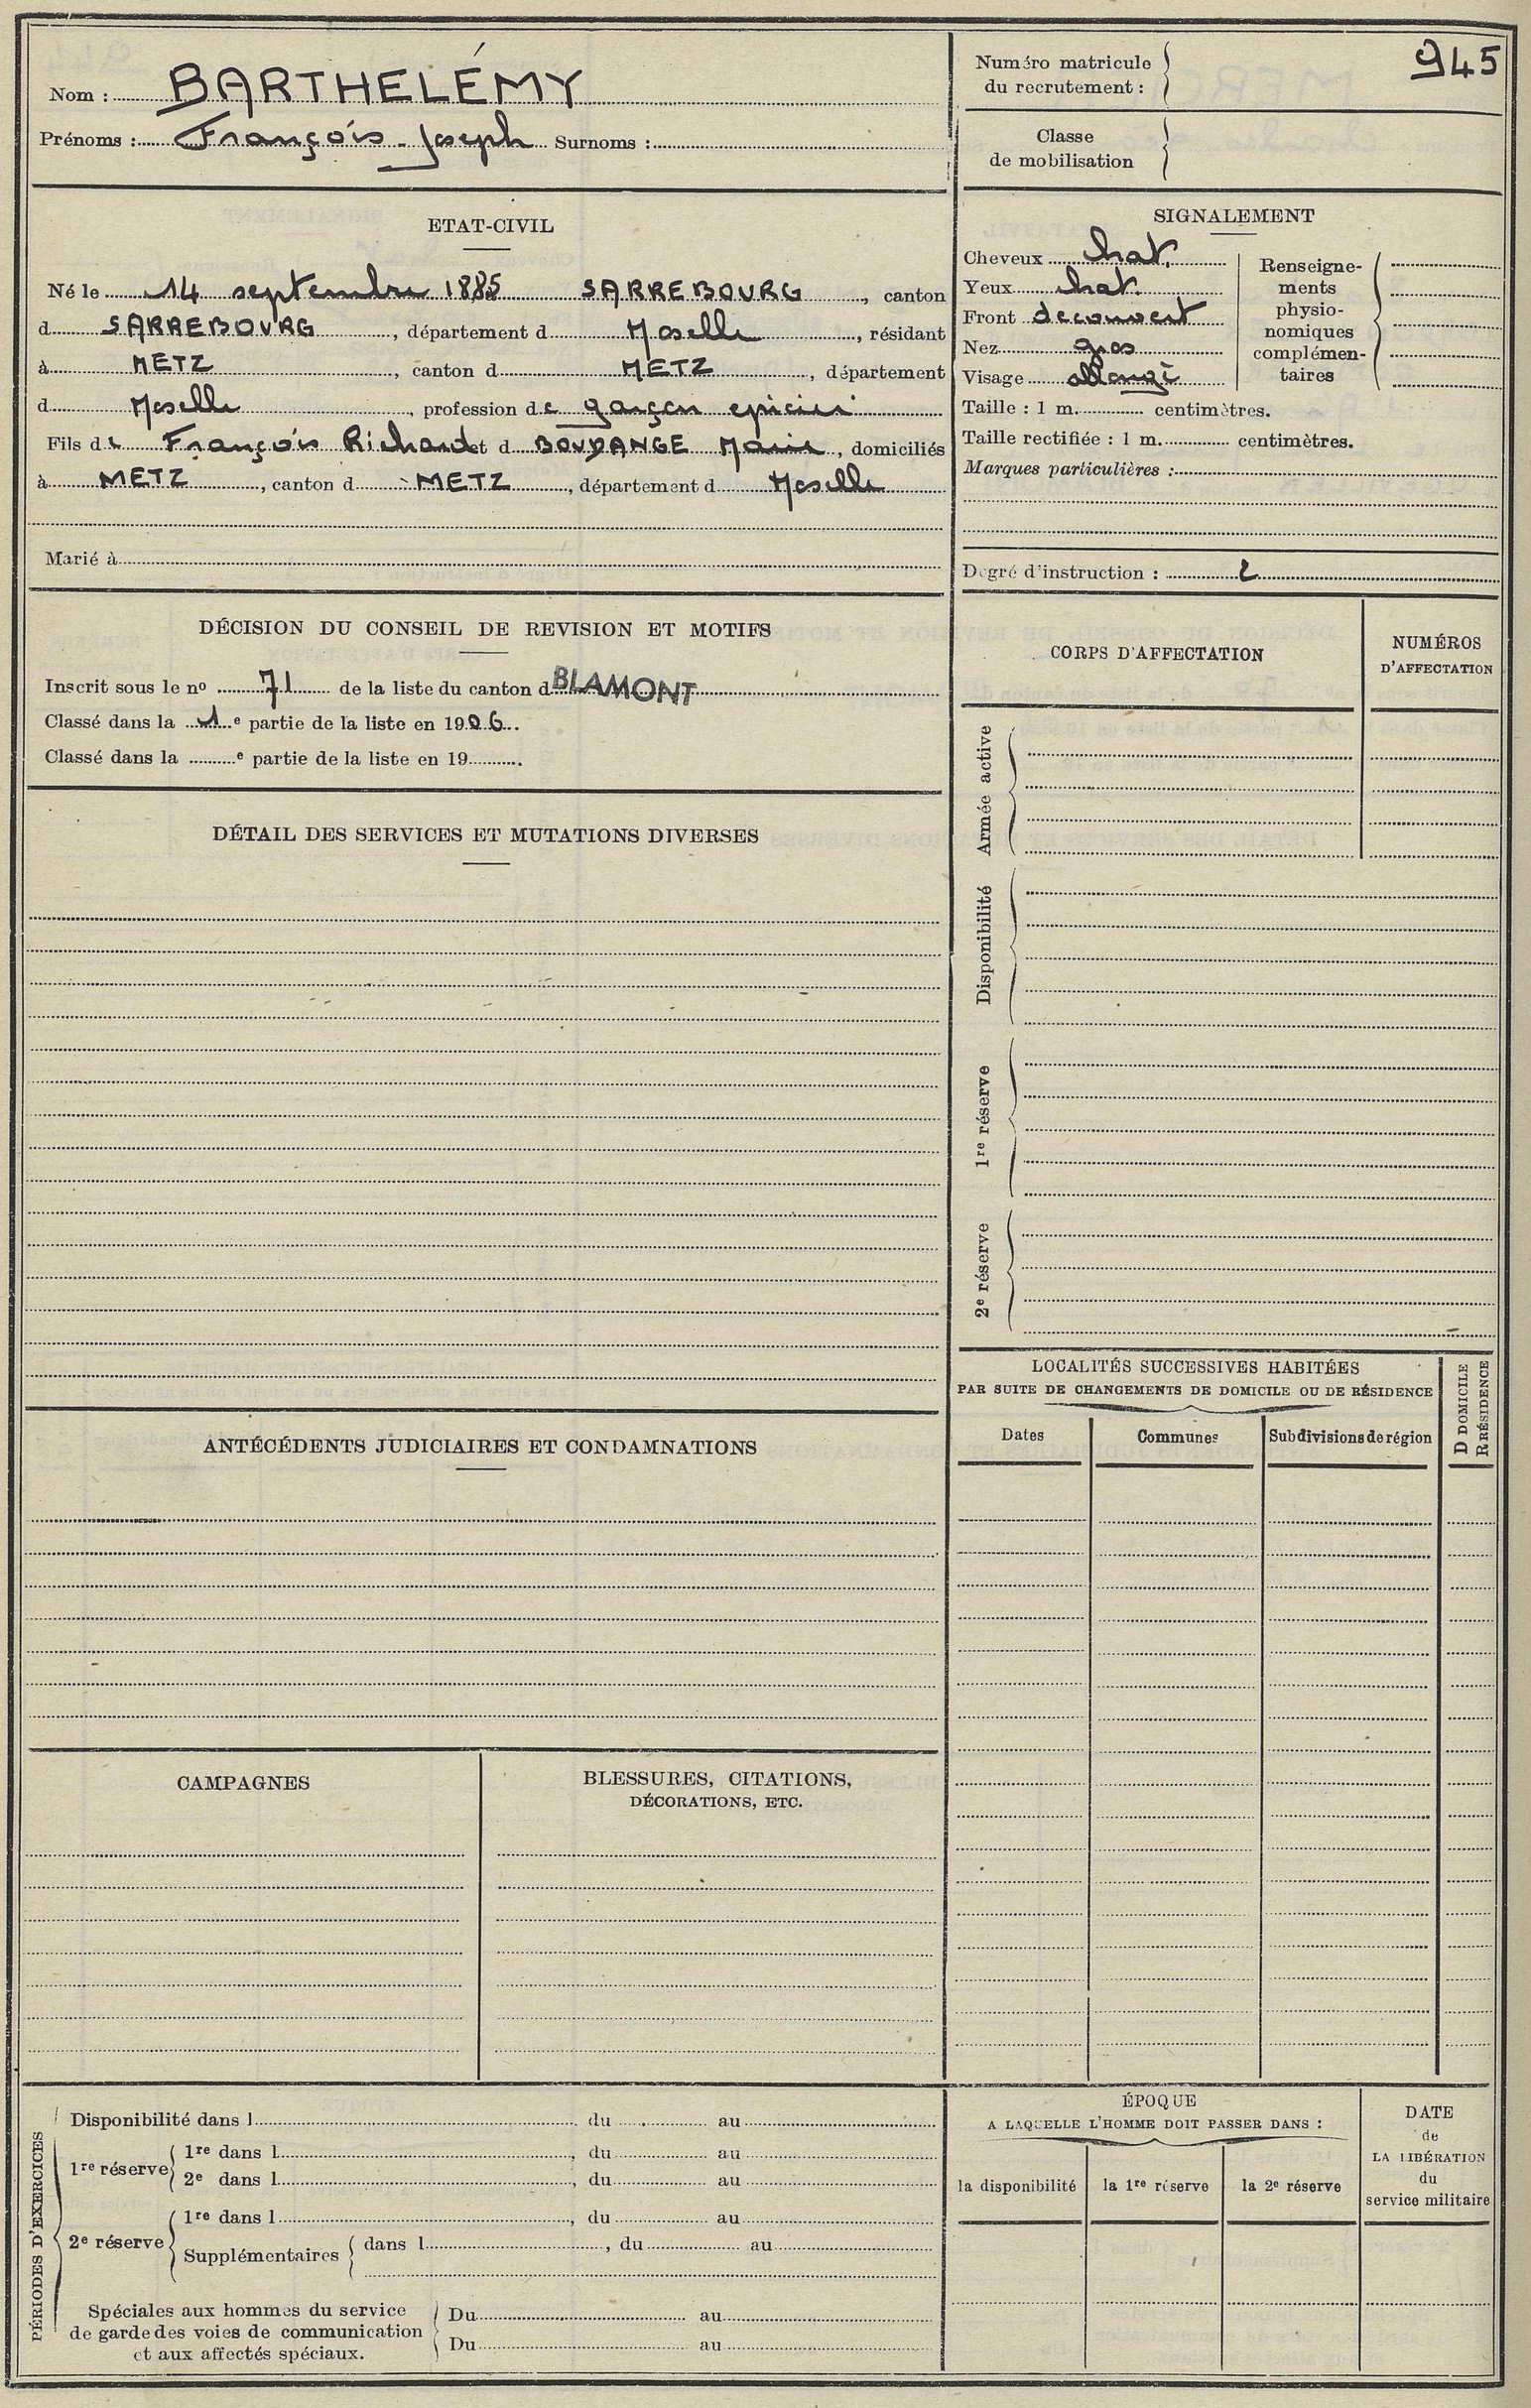 Nom : BARTHELÉMY
Prénoms : François-Joseph Surnoms :
Numéro matricule du recrutement : 945
Classe de mobilisation
ETAT-CIVIL
Né le 14 septembre 1885 SARREBOURG, canton
d SARREBOURG, département d Moselle, résidant
à METZ, canton d METZ, département
d Moselle, profession de garçon epicier
Fils de François Richard et d BOUDANGE Marie, domiciliés
à METZ, canton d METZ, département d Moselle
Marié à
SIGNALEMENT
Cheveux chat.
Yeux chat.
Front decouvert
Nez gros
Visage allongé
Renseigne-
ments
physio-
nomiques
complémen-
taires
Taille : 1 m. centimètres.
Taille rectifiée : 1 m. centimètres.
Marques particulières :
Degré d'instruction : 2
DÉCISION DU CONSEIL DE REVISION ET MOTIFS
Inscrit sous le nº 71 de la liste du canton d BLAMONT
Classé dans la 1e partie de la liste en 1906.
Classé dans la e partie de la liste en 19 .
CORPS D'AFFECTATION
NUMÉROS
D'AFFECTATION
Armée active
Disponibilité
1re réserve
2e réserve
DÉTAIL DES SERVICES ET MUTATIONS DIVERSES
LOCALITÉS SUCCESSIVES HABITÉES
PAR SUITE DE CHANGEMENTS DE DOMICILE OU DE RÉSIDENCE
D DOMICILE
R RÉSIDENCE
Dates
Communes
Subdivisions de région
ANTÉCÉDENTS JUDICIAIRES ET CONDAMNATIONS
CAMPAGNES
BLESSURES, CITATIONS,
DÉCORATIONS, ETC.
PÉRIODES D'EXERCICES
Disponibilité dans l , du au
1re réserve
1re dans l , du au
2e dans l , du au
2e réserve
1re dans l , du au
Supplémentaires dans l , du au
Spéciales aux hommes du service
de garde des voies de communication
et aux affectés spéciaux.
Du au
Du au
ÉPOQUE
A LAQUELLE L'HOMME DOIT PASSER DANS :
la disponibilité
la 1re réserve
la 2e réserve
DATE
de
LA LIBÉRATION
du
service militaire